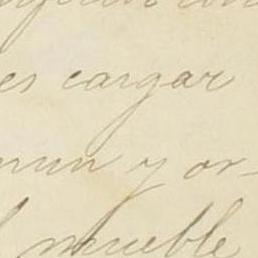 es cargar
mun y or-
l mueble